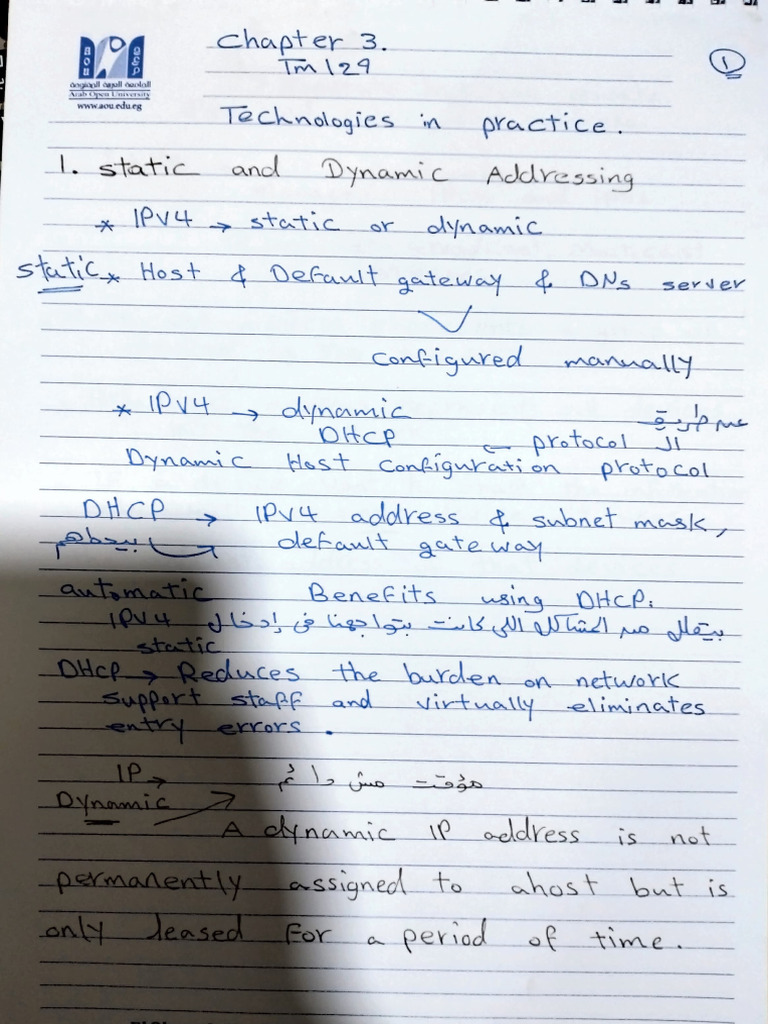 AOU
الجامعة العربية المفتوحة
Arab Open University
www.aou.edu.eg
Chapter 3.
TM129
1
Technologies in practice.
1. static and Dynamic Addressing
* IPV4 → static or dynamic
static * Host & Default gateway & DNs server
configured manually
* IPV4 → dynamic
عن طريق
DHCP ← protocol ال
Dynamic Host configuration protocol
DHCP → IPV4 address & subnet mask,
بيحطهم default gateway
automatic Benefits using DHCP:
بيقلل من المشاكل اللى كانت بتواجهنا فى إدخال IPV4
static
DHCP → Reduces the burden on network
support staff and virtually eliminates
entry errors.
IP → مؤقت مش دائم
Dynamic
A dynamic IP address is not
permanently assigned to ahost but is
only leased for a period of time.